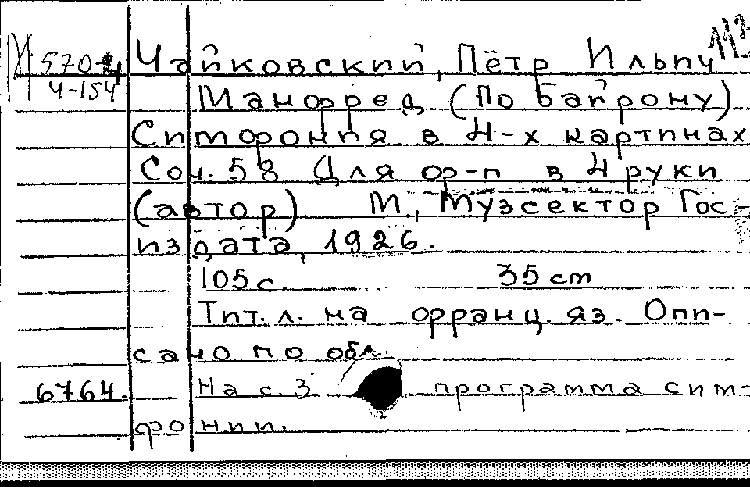 М 570-4 Чайковский, Пётр Ильич
Ч-154 Манфред (По Байрону)
Симфония в 4-х картинах
Соч. 58 Для ф-п в 4 руки
(автор) М., Музсектор Гос-
издата, 1926.
105 с. 35 cm
Тит. л. на франц. яз. Опи-
сано по обл.
6764. На с. 3 программа сим-
фонии.